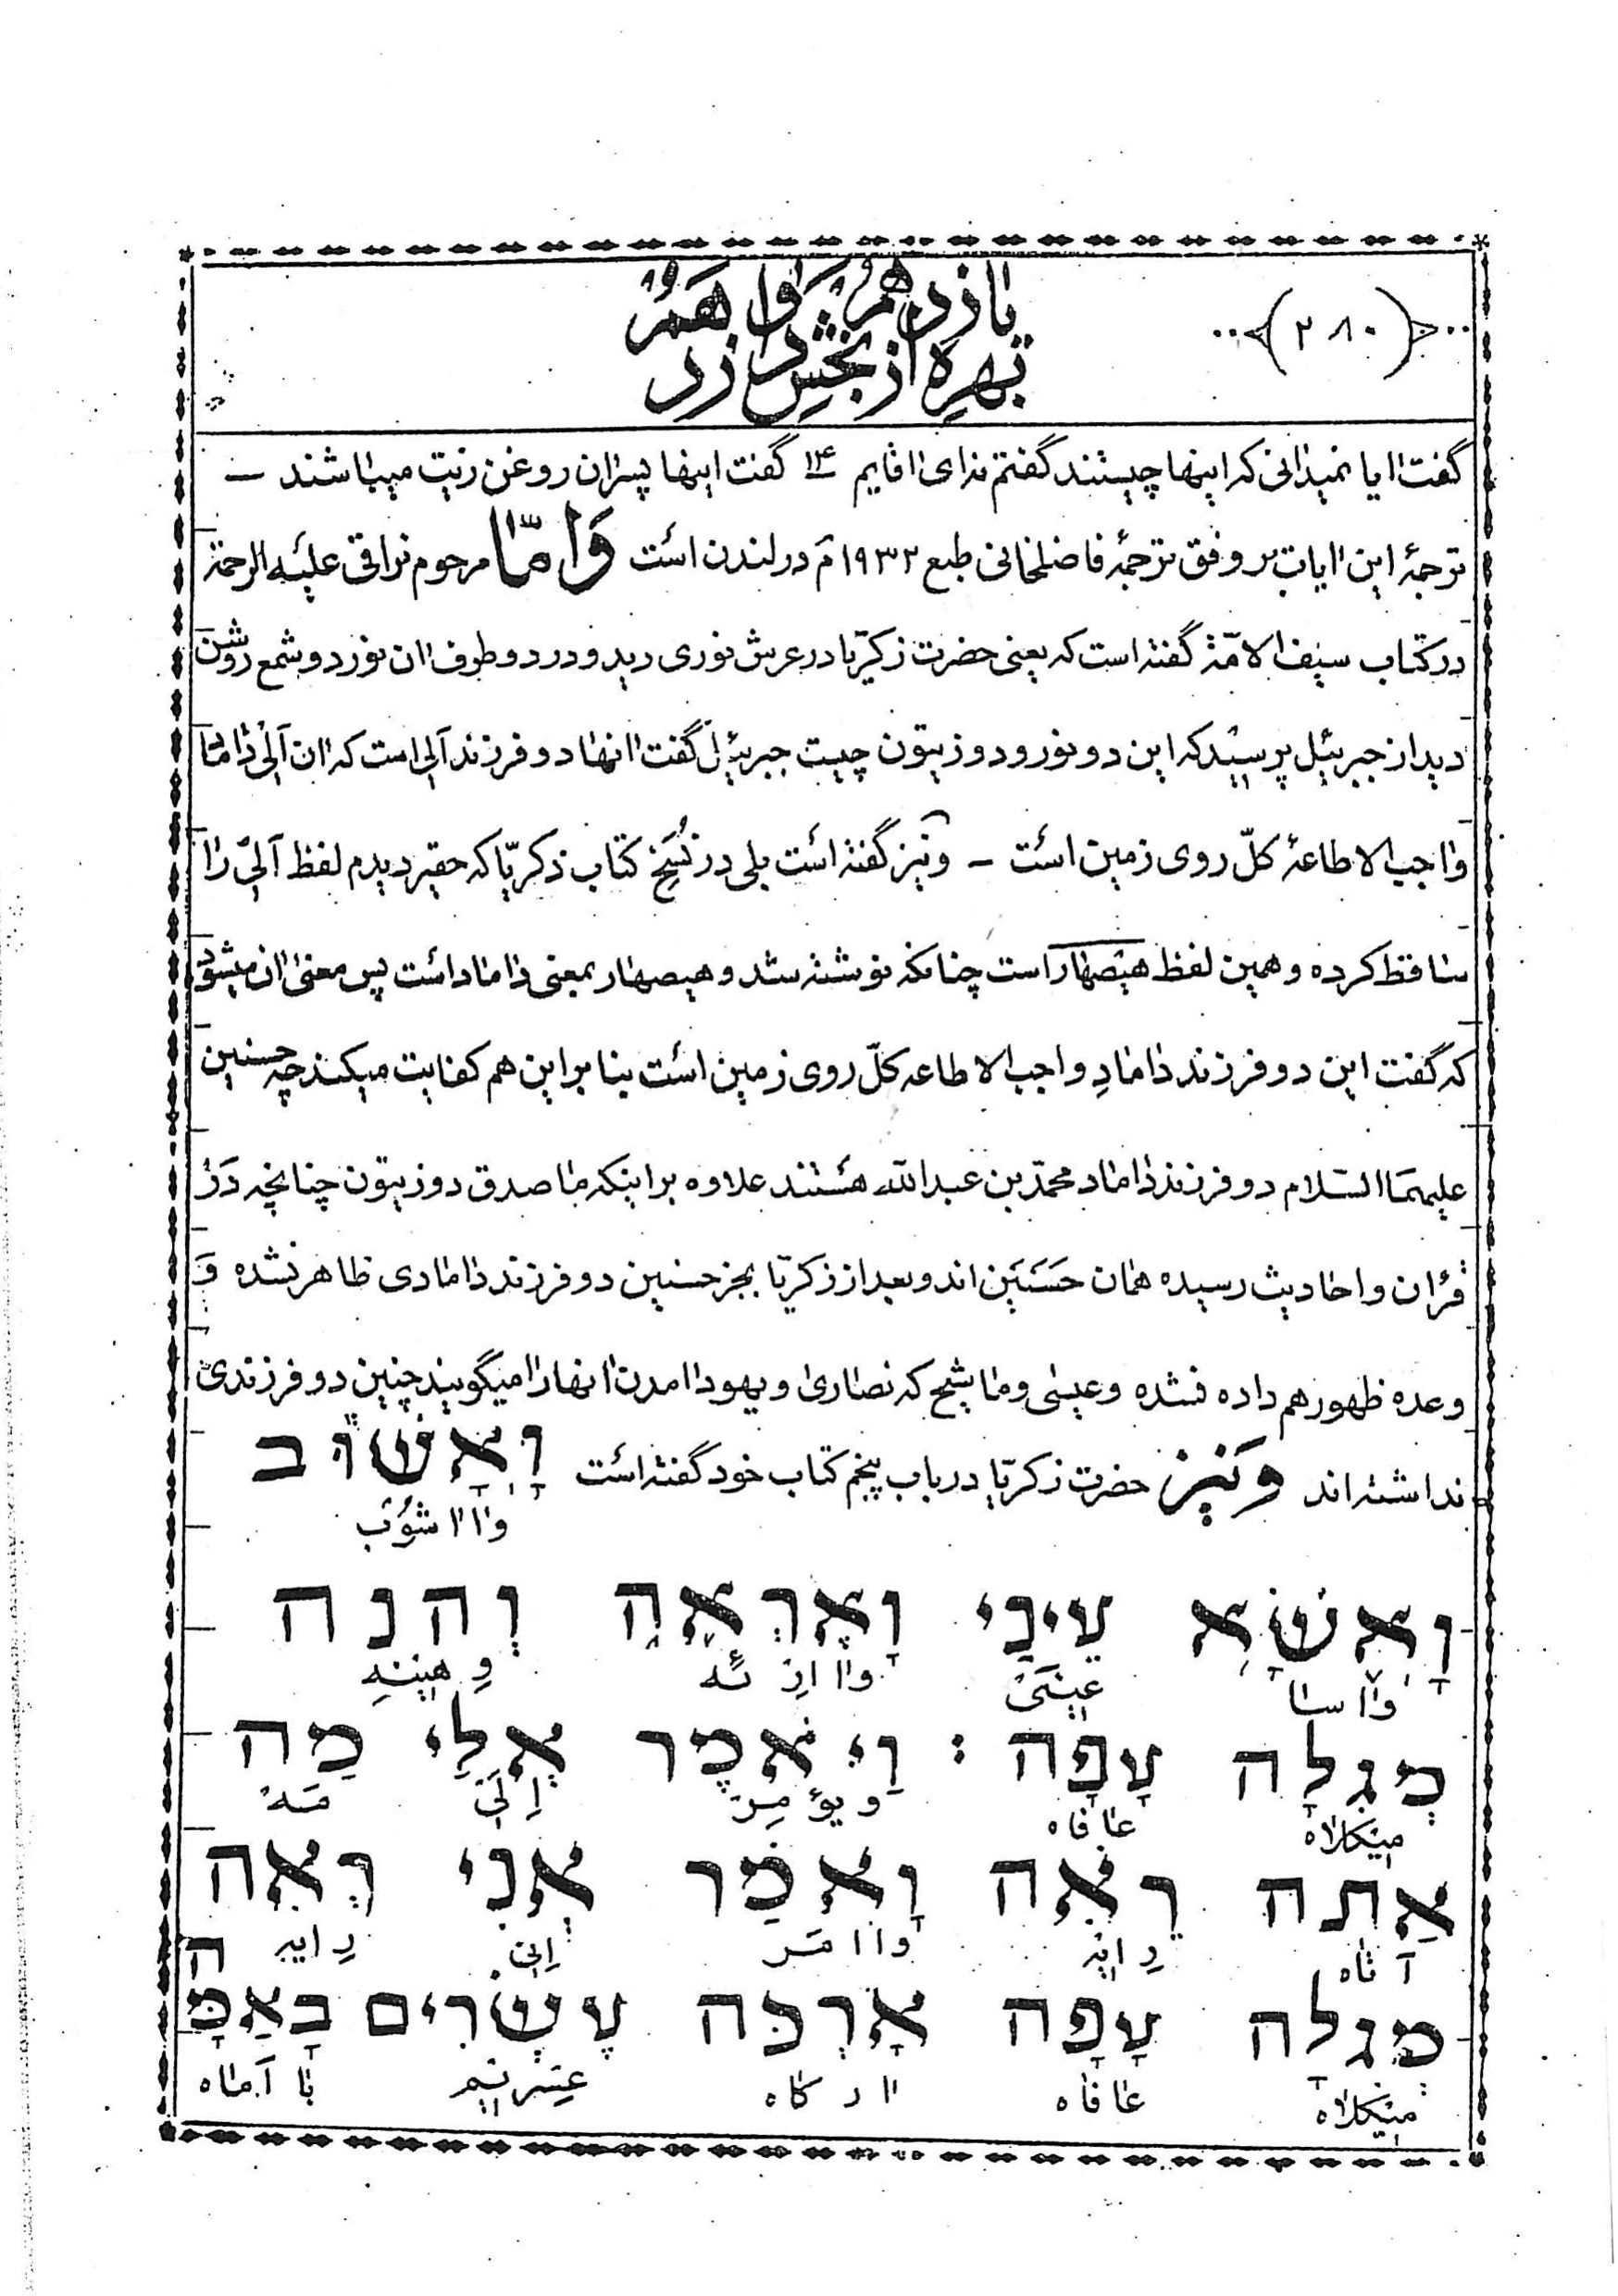 (۲۸۰)
بهره یازدهم از بخش دوازدهم
گفت ایا نمیدانی که اینها چیستند گفتم نه ای اقایم ۱۴ گفت اینها پسران روغن زیت میباشند –
ترجمهٔ این ایات بر وفق ترجمهٔ فاضلخانی طبع ۱۹۳۲ م در لندن است وَامّا مرحوم نراقی علیه الرحمة
در کتاب سیف الامّة گفته است که یعنی حضرت زکریّا در عرش نوری دید و در دو طرف ان نور دو شمع روشن
دید از جبرئیل پرسید که این دو نور و دو زیتون چیست جبرئیل گفت انها دو فرزند آلی است که ان آلی داماد
واجب الاطاعهٔ کلّ روی زمین است – و نیز گفته است بلی در نُسَخِ کتاب ذکریّا که حقیر دیدم لفظ آلی را
ساقط کرده و همین لفظ هیصهار است چنانکه نوشته شد و هیصهار بمعنی داماد است پس معنی ان میشود
که گفت این دو فرزند دامادِ واجب الاطاعه کلّ روی زمین است بنا بر این هم کفایت میکند چه حسنین
علیهمَا السّلام دو فرزند داماد محمّد بن عبدالله هستند علاوه بر اینکه ما صدق دو زیتون چنانچه دَر
قرٔان و احادیث رسیده همان حَسَنَین اند و بعد از زکریّا بجز حسنین دو فرزند دامادی ظاهر نشده وَ
وعده ظهور هم داده نشده و عیسٰی و ماشیح که نصاریٰ و یهود امدن انها را میگویند چنین دو فرزندی
نداشته اند وَنیز حضرت زکریّا در باب پنجم کتاب خود گفته است וָאָשׁוּב
وٰاا شوُب
וָאֶשָּׂא עֵינַי וָאֶרְאֶה וְהִנֵּה
وٰا سا عِینَیْ وٰا ارِ ئه وِ هینهِ
מְגִלָּה עָפָה : וַיֹּאמֶר אֵלַי מַה
میکلاه عافاه ویؤمِرَ اِلَیْ مَه
אַתָּה רֹאֶה וָאֹמַר אֲנִי רֹאֶה
آ تاه رِ ایه واا مَر اِنی رِ ایه
מְגִלָּה עָפָה אָרְכָּהּ עֶשְׂרִים בָּאַמָּה
میکلاه عافاه اا ر کاه عِسریم با آماه